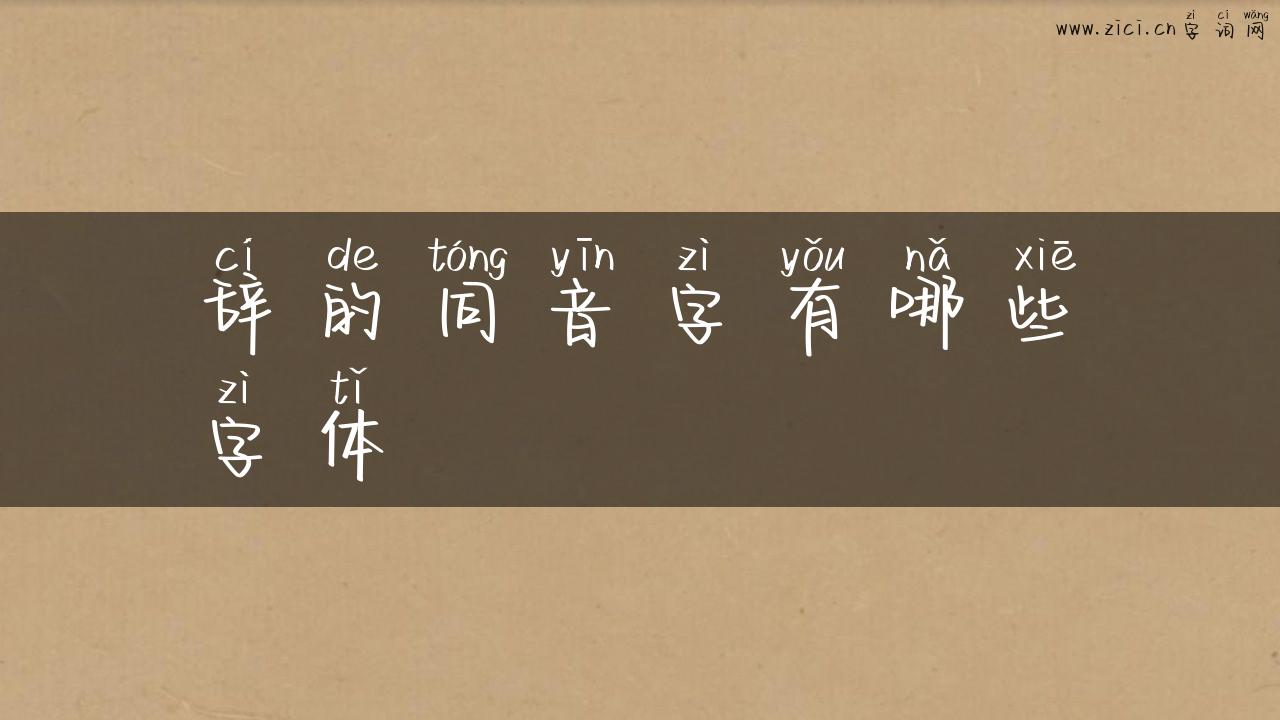 zì cí wǎng
www.zici.cn 字词网
cí de tóng yīn zì yǒu nǎ xiē
辞的同音字有哪些
zì tǐ
字体